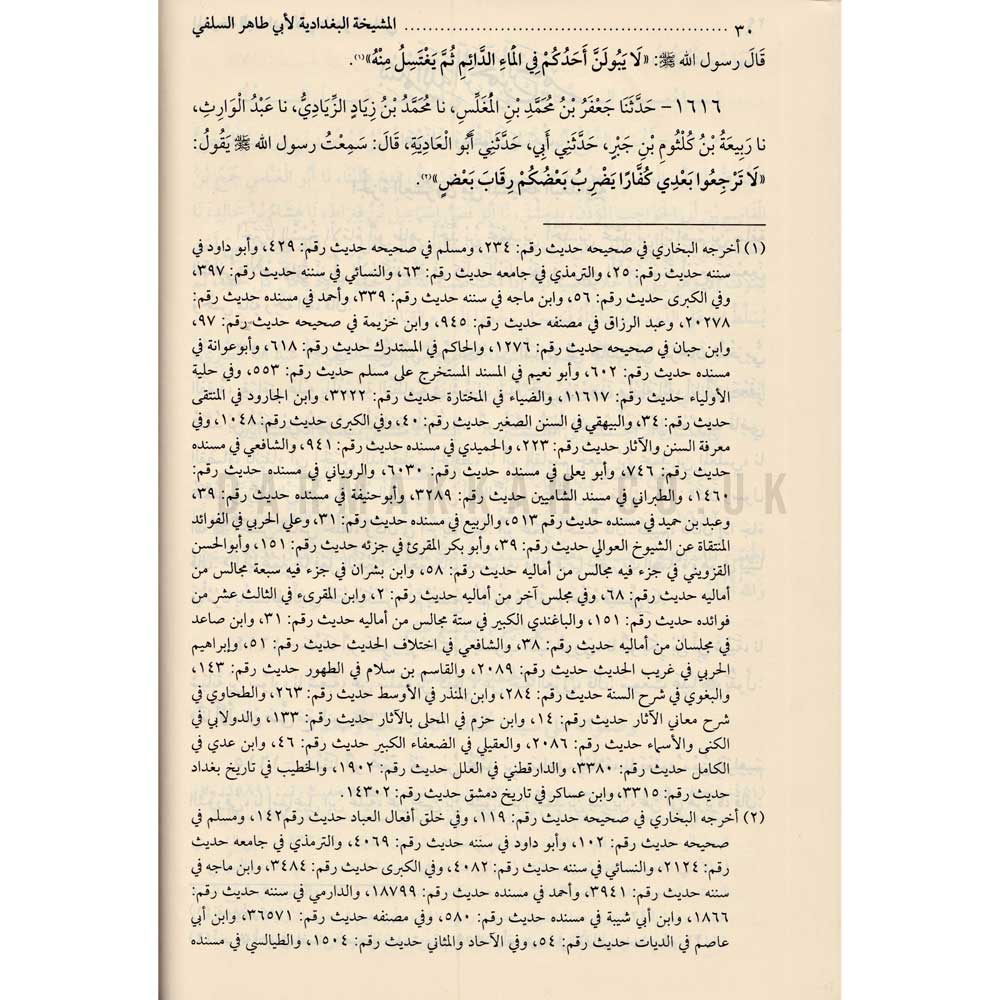 ٣٠ ........................................................ المشيخة البغدادية لأبي طاهر السلفي
قَالَ رسول الله ﷺ: «لَا يَبُولَنَّ أَحَدُكُمْ فِي الْمَاءِ الدَّائِمِ ثُمَّ يَغْتَسِلُ مِنْهُ»(١).
١٦١٦- حَدَّثَنَا جَعْفَرُ بْنُ مُحَمَّدِ بْنِ الْمُغَلِّسِ، نا مُحَمَّدُ بْنُ زِيَادٍ الزِّيَادِيُّ، نا عَبْدُ الْوَارِثِ،
نا رَبِيعَةُ بْنُ كُلْثُومِ بْنِ جَبْرٍ، حَدَّثَنِي أَبِي، حَدَّثَنِي أَبُو الْعَادِيَةِ، قَالَ: سَمِعْتُ رسول الله ﷺ يَقُولُ:
«لَا تَرْجِعُوا بَعْدِي كُفَّارًا يَضْرِبُ بَعْضُكُمْ رِقَابَ بَعْضٍ»(٢).
(١) أخرجه البخاري في صحيحه حديث رقم: ٢٣٤، ومسلم في صحيحه حديث رقم: ٤٢٩، وأبو داود في
سننه حديث رقم: ٢٥، والترمذي في جامعه حديث رقم: ٦٣، والنسائي في سننه حديث رقم: ٣٩٧،
وفي الكبرى حديث رقم: ٥٦، وابن ماجه في سننه حديث رقم: ٣٣٩، وأحمد في مسنده حديث رقم:
٢٠٢٧٨، وعبد الرزاق في مصنفه حديث رقم: ٩٤٥، وابن خزيمة في صحيحه حديث رقم: ٩٧،
وابن حبان في صحيحه حديث رقم: ١٢٧٦، والحاكم في المستدرك حديث رقم: ٦١٨، وأبوعوانة في
مسنده حديث رقم: ٦٠٢، وأبو نعيم في المسند المستخرج على مسلم حديث رقم: ٥٥٣، وفي حلية
الأولياء حديث رقم: ١١٦١٧، والضياء في المختارة حديث رقم: ٣٢٢٢، وابن الجارود في المنتقى
حديث رقم: ٣٤، والبيهقي في السنن الصغير حديث رقم: ٤٠، وفي الكبرى حديث رقم: ١٠٤٨، وفي
معرفة السنن والآثار حديث رقم: ٢٢٣، والحميدي في مسنده حديث رقم: ٩٤١، والشافعي في مسنده
حديث رقم: ٧٤٦، وأبو يعلى في مسنده حديث رقم: ٦٠٣٠، والروياني في مسنده حديث رقم:
١٤٦٠، والطبراني في مسند الشاميين حديث رقم: ٣٢٨٩، وأبوحنيفة في مسنده حديث رقم: ٣٩،
وعبد بن حميد في مسنده حديث رقم ٥١٣، والربيع في مسنده حديث رقم: ٣١، وعلي الحربي في الفوائد
المنتقاة عن الشيوخ العوالي حديث رقم: ٣٩، وأبو بكر المقرئ في جزئه حديث رقم: ١٥١، وأبوالحسن
القزويني في جزء فيه مجالس من أماليه حديث رقم: ٥٨، وابن بشران في جزء فيه سبعة مجالس من
أماليه حديث رقم: ٦٨، وفي مجلس آخر من أماليه حديث رقم: ٢، وابن المقرىء في الثالث عشر من
فوائده حديث رقم: ١٥١، والباغندي الكبير في ستة مجالس من أماليه حديث رقم: ٣١، وابن صاعد
في مجلسان من أماليه حديث رقم: ٣٨، والشافعي في اختلاف الحديث حديث رقم: ٥١، وإبراهيم
الحربي في غريب الحديث حديث رقم: ٢٠٨٩، والقاسم بن سلام في الطهور حديث رقم: ١٤٣،
والبغوي في شرح السنة حديث رقم: ٢٨٤، وابن المنذر في الأوسط حديث رقم: ٢٦٣، والطحاوي في
شرح معاني الآثار حديث رقم: ١٤، وابن حزم في المحلى بالآثار حديث رقم: ١٣٣، والدولابي في
الكنى والأسماء حديث رقم: ٢٠٨٦، والعقيلي في الضعفاء الكبير حديث رقم: ٤٦، وابن عدي في
الكامل حديث رقم: ٣٣٨٠، والدارقطني في العلل حديث رقم: ١٩٠٢، والخطيب في تاريخ بغداد
حديث رقم: ٣٣١٥، وابن عساكر في تاريخ دمشق حديث رقم: ١٤٣٠٢.
(٢) أخرجه البخاري في صحيحه حديث رقم: ١١٩، وفي خلق أفعال العباد حديث رقم١٤٢، ومسلم في
صحيحه حديث رقم: ١٠٢، وأبو داود في سننه حديث رقم: ٤٠٦٩، والترمذي في جامعه حديث
رقم: ٢١٢٤، والنسائي في سننه حديث رقم: ٤٠٨٢، وفي الكبرى حديث رقم: ٣٤٨٤، وابن ماجه في
سننه حديث رقم: ٣٩٤١، وأحمد في مسنده حديث رقم: ١٨٧٩٩، والدارمي في سننه حديث رقم:
١٨٦٦، وابن أبي شيبة في مسنده حديث رقم: ٥٨٠، وفي مصنفه حديث رقم: ٣٦٥٧١، وابن أبي
عاصم في الديات حديث رقم: ٥٤، وفي الآحاد والمثاني حديث رقم: ١٥٠٤، والطيالسي في مسنده
DARMAKKAH.CO.UK